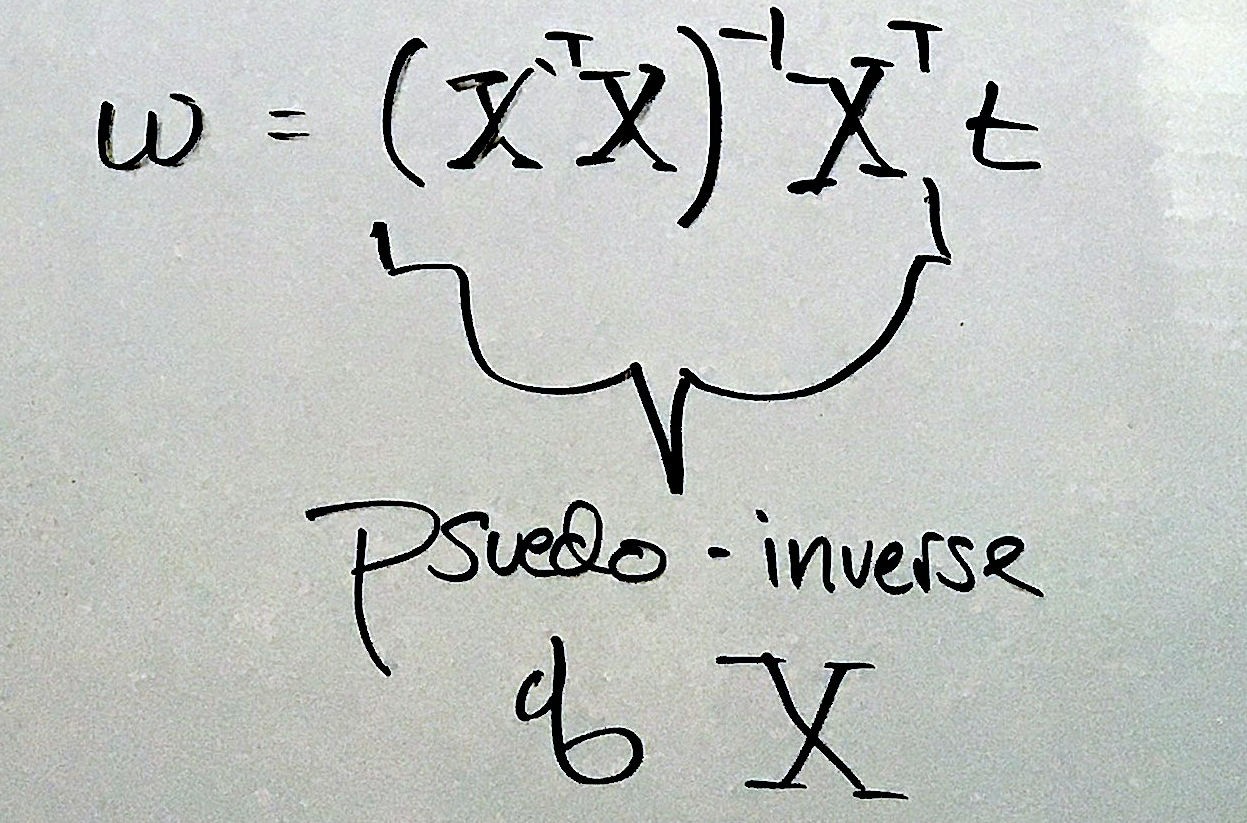 w = (XᵀX)⁻¹Xᵀt
psuedo-inverse
of X